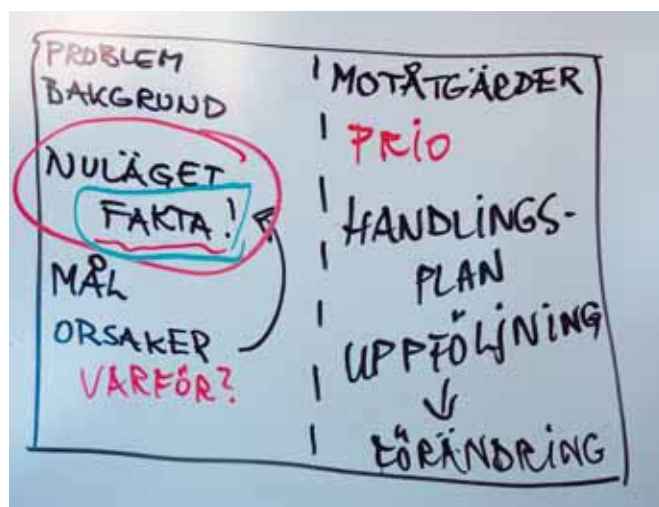 PROBLEM
BAKGRUND
NULÄGET
FAKTA!
MÅL
ORSAKER
VARFÖR?
MOTÅTGÄRDER
PRIO
HANDLINGS-
PLAN
UPPFÖLJNING
FÖRÄNDRING